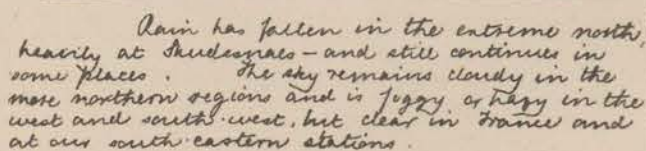 Rain has fallen in the extreme north,
heavily at Skudesnaes – and still continues in
some places. The sky remains cloudy in the
more northern regions and is foggy or hazy in the
west and south-west, but clear in France and
at our south-eastern stations.